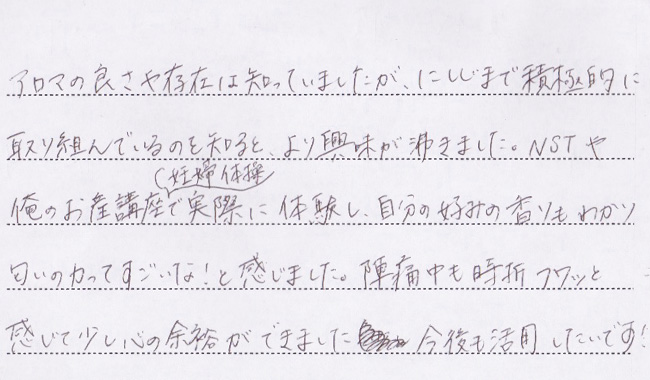 アロマの良さや存在は知っていましたが、にしじまで積極的に
取り組んでいるのを知ると、より興味が沸きました。NSTや
(妊婦体操
俺のお産講座で実際に体験し、自分の好みの香りもわかり
匂いの力ってすごいな!と感じました。陣痛中も時折フワッと
感じて少し心の余裕ができました 今後も活用したいです!